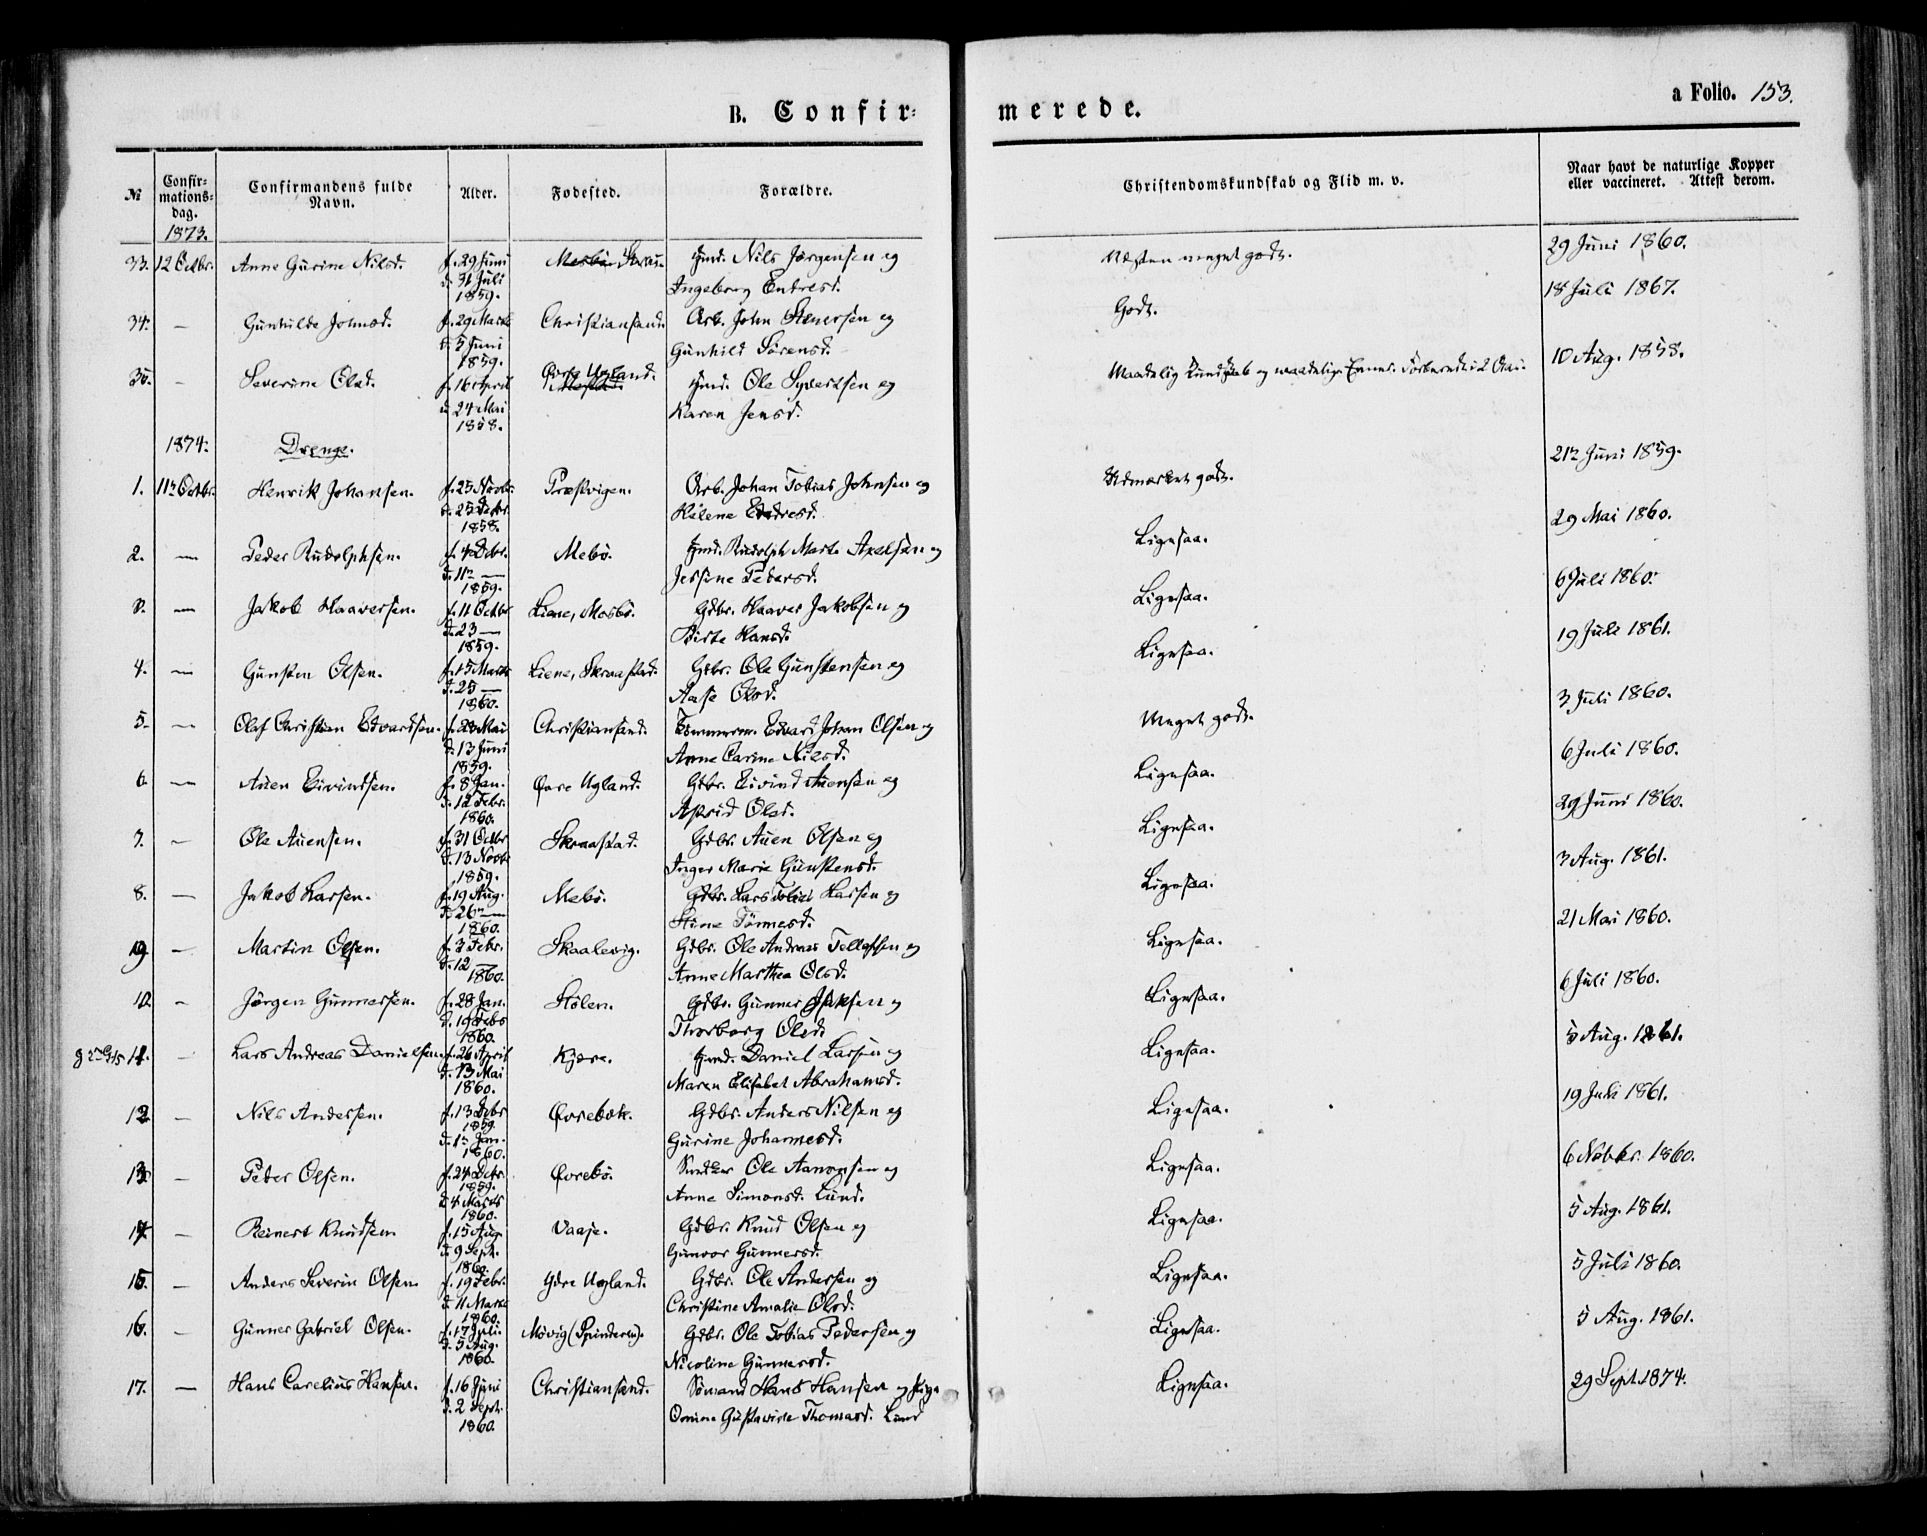 B. Confir-
merede.
a Folio. 153.
No
Confir-
mations-
dag.
Confirmandens fulde
Navn.
Alder.
Fødested.
Forældre.
Christendomskundskab og Flid m. v.
Naar havt de naturlige Kopper
eller vaccineret. Attest derom.
1873.
33. 12 Octbr. Anne Gurine Nilsd. f. 29 Juni Hmd. Nils Jørgensen og Næsten meget godt. 29 Juni 1860.
d. 31 Juli
1859. Ingeborg Endresd.
34. — Gunhilde Johnsd. f. 29 Marts Christiansand. Arb. John Stenersen og Godt. 18 Juli 1867.
d. 5 Juni
1859. Gunhild Sørensd.
35. — Severine Olsd. f. 16 April Øvre Ugland. Hmd. Ole Syvertsen og Maadelig Kundskab og maadelige Evner. 10 Aug. 1858.
d. 24 Mai
1858. Karen Jensd.
1874. Drenge.
1. 11te Octbr. Henrik Johansen. f. 25 Novbr. Præstvigen. Arb. Johan Tobias Johnsen og Udmærket godt. 21de Juni 1859.
d. 25 Decbr.
1858. Helene Endresd.
2. — Peder Rudolphsen. f. 4 Debr. Mebø. Hmd. Rudolph Marte Axelsen og Ligesaa. 29 Mai 1860.
d. 11te —
1859. Jessine Pedersd.
3. — Jakob Haaversen. f. 11 Octbr Liene, Mosbø. Gdbr. Haaver Jakobsen og Ligesaa. 6 Juli 1860.
d. 23 —
1859. Birte Hansd.
4. — Gunsten Olsen. f. 15 Marts Liene, Skraastad. Gdbr. Ole Gunstensen og Ligesaa. 19 Juli 1861.
d. 25 —
1860. Aase Olsd.
5. — Olaf Christian Edvardsen. f. 28 Mai Christiansand. Tømmerm. Edvard Johan Olsen og Meget godt. 3 Juli 1860.
d. 13 Juni
1859. Anne Carine Nilsd.
6. — Auen Eivindsen. f. 8 Jan. Øvre Ugland. Gdbr. Eivind Auensen og Ligesaa. 6 Juli 1860.
d. 12 Febr.
1860. Astrid Olsd.
7. — Ole Auensen. f. 31 Octbr Skraastad. Gdbr. Auen Olsen og Ligesaa. 29 Juni 1860.
d. 13 Novbr
1859. Inger Marie Gunstensd.
8. — Jakob Larsen. f. 19 Aug. Mebø. Gdbr. Lars Tobias Larsen og Ligesaa. 3 Aug. 1861.
d. 26de —
1860. Stine Tønnesd.
9 — Martin Olsen. f. 3 Febr. Skaalevig. Gdbr. Ole Andreas Tellefsen og Ligesaa. 21 Mai 1860.
d. 12 —
1860. Anne Marthea Olsd.
10. — Jørgen Gunnersen. f. 28 Jan. Stølen. Gdbr. Gunner Jensen og Ligesaa. 6 Juli 1860.
d. 19 Febr
1860. Thorborg Olsd.
11. — Lars Andreas Danielsen. f. 26 April Kjære. Hmd. Daniel Larsen og Ligesaa. 5 Aug. 1861.
d. 13 Mai
1860. Maren Elisabet Abrahamsd.
12 — Nils Andersen. f. 13 Debr Øvrebøk. Gdbr. Anders Nilsen og Ligesaa. 19 Juli 1861.
1859.
d. 1te Jan.
1860. Gurine Johannesd.
13 — Peder Olsen. f. 24 Debr. Øvrebø. Ole Aanonsen og Ligesaa. 6 Novbr. 1860.
1859.
d. 4 Marts
1860. Anne Simonsd. Lund.
14 — Reinert Knudsen. f. 15 Aug. Vaaje. Gdbr. Knud Olsen og Ligesaa. 5 Aug. 1861.
d. 9 Sept.
1860. Gunvor Gunnersd.
15. — Anders Severin Olsen. f. 19 Febr. Ydre Ugland. Gdbr. Ole Andersen og Ligesaa. 5 Juli 1860.
d. 11 Marts
1860. Christine Amalie Olsd.
16. — Gunner Gabriel Olsen. f. 17 Juli. Møvig (Spinderen). Gdbr. Ole Tobias Pedersen og Ligesaa. 5 Aug. 1861.
d. 5 Aug.
1860. Nicoline Gunnersd.
17. — Hans Carelius Hansen. f. 16 Juni Christiansand. Sømand Hans Hansen og Pige Ligesaa. 29 Sept. 1874.
d. 2 Sept.
1860. Gustavine Thomasd. Lund